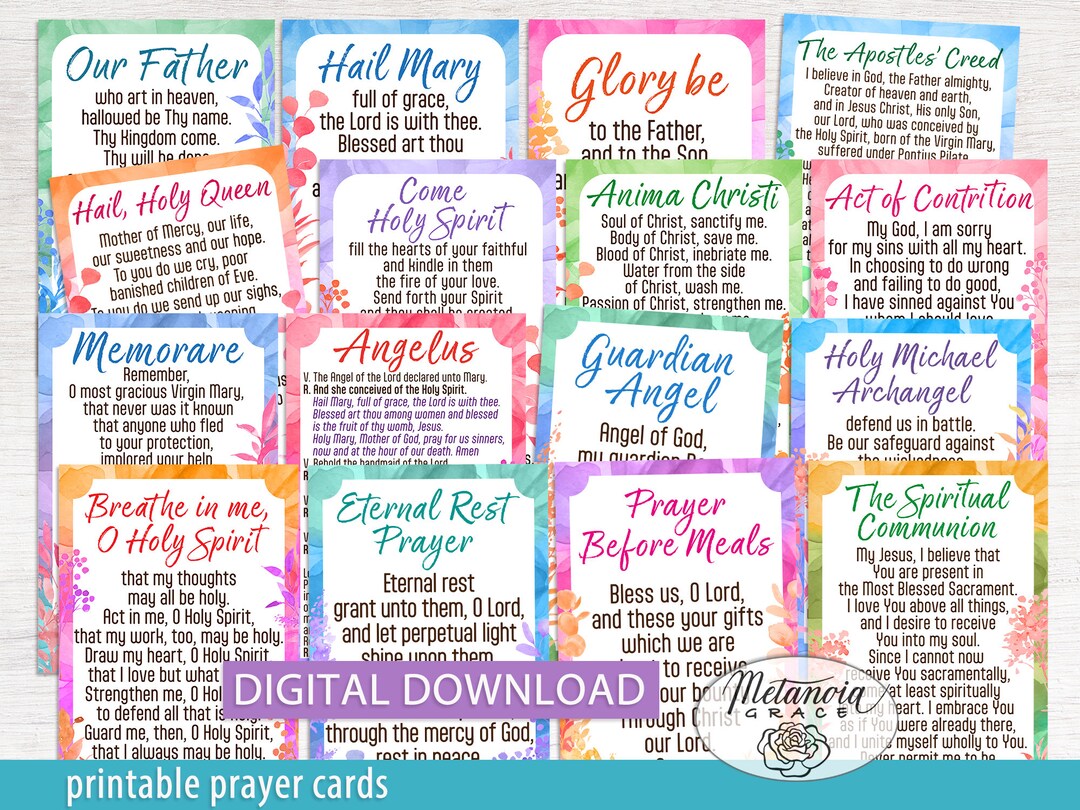 Our Father
who art in heaven,
hallowed be Thy name.
Thy Kingdom come.
Thy will be done
Hail Mary
full of grace,
the Lord is with thee.
Blessed art thou
Glory be
to the Father,
and to the Son
The Apostles' Creed
I believe in God, the Father almighty,
Creator of heaven and earth,
and in Jesus Christ, His only Son,
our Lord, who was conceived by
the Holy Spirit, born of the Virgin Mary,
suffered under Pontius Pilate
Hail, Holy Queen
Mother of Mercy, our life,
our sweetness and our hope.
To you do we cry, poor
banished children of Eve.
To you do we send up our sighs,
Come
Holy Spirit
fill the hearts of your faithful
and kindle in them
the fire of your love.
Send forth your Spirit
and they shall be created
Anima Christi
Soul of Christ, sanctify me.
Body of Christ, save me.
Blood of Christ, inebriate me.
Water from the side
of Christ, wash me.
Passion of Christ, strengthen me.
Act of Contrition
My God, I am sorry
for my sins with all my heart.
In choosing to do wrong
and failing to do good,
I have sinned against You
whom I should love
Memorare
Remember,
O most gracious Virgin Mary,
that never was it known
that anyone who fled
to your protection,
implored your help
Angelus
V. The Angel of the Lord declared unto Mary.
R. And she conceived of the Holy Spirit.
Hail Mary, full of grace, the Lord is with thee.
Blessed art thou among women and blessed
is the fruit of thy womb, Jesus.
Holy Mary, Mother of God, pray for us sinners,
now and at the hour of our death. Amen
V. Behold the handmaid of the Lord
Guardian
Angel
Angel of God,
my guardian
Holy Michael
Archangel
defend us in battle.
Be our safeguard against
the wickedness
Breathe in me,
O Holy Spirit
that my thoughts
may all be holy.
Act in me, O Holy Spirit,
that my work, too, may be holy.
Draw my heart, O Holy Spirit
that I love but what
Strengthen me, O
to defend all that is holy.
Guard me, then, O Holy Spirit,
that I always may be holy.
Eternal Rest
Prayer
Eternal rest
grant unto them, O Lord,
and let perpetual light
shine upon them
through the mercy of God,
rest in peace
Prayer
Before Meals
Bless us, O Lord,
and these your gifts
which we are
to receive
our
Through Christ
our Lord
The Spiritual
Communion
My Jesus, I believe that
You are present in
the Most Blessed Sacrament.
I love You above all things,
and I desire to receive
You into my soul.
Since I cannot now
receive You sacramentally,
at least spiritually
heart. I embrace You
as if You were already there,
and I unite myself wholly to You.
Never permit me to be
DIGITAL DOWNLOAD
Metanoia
GRACE
printable prayer cards